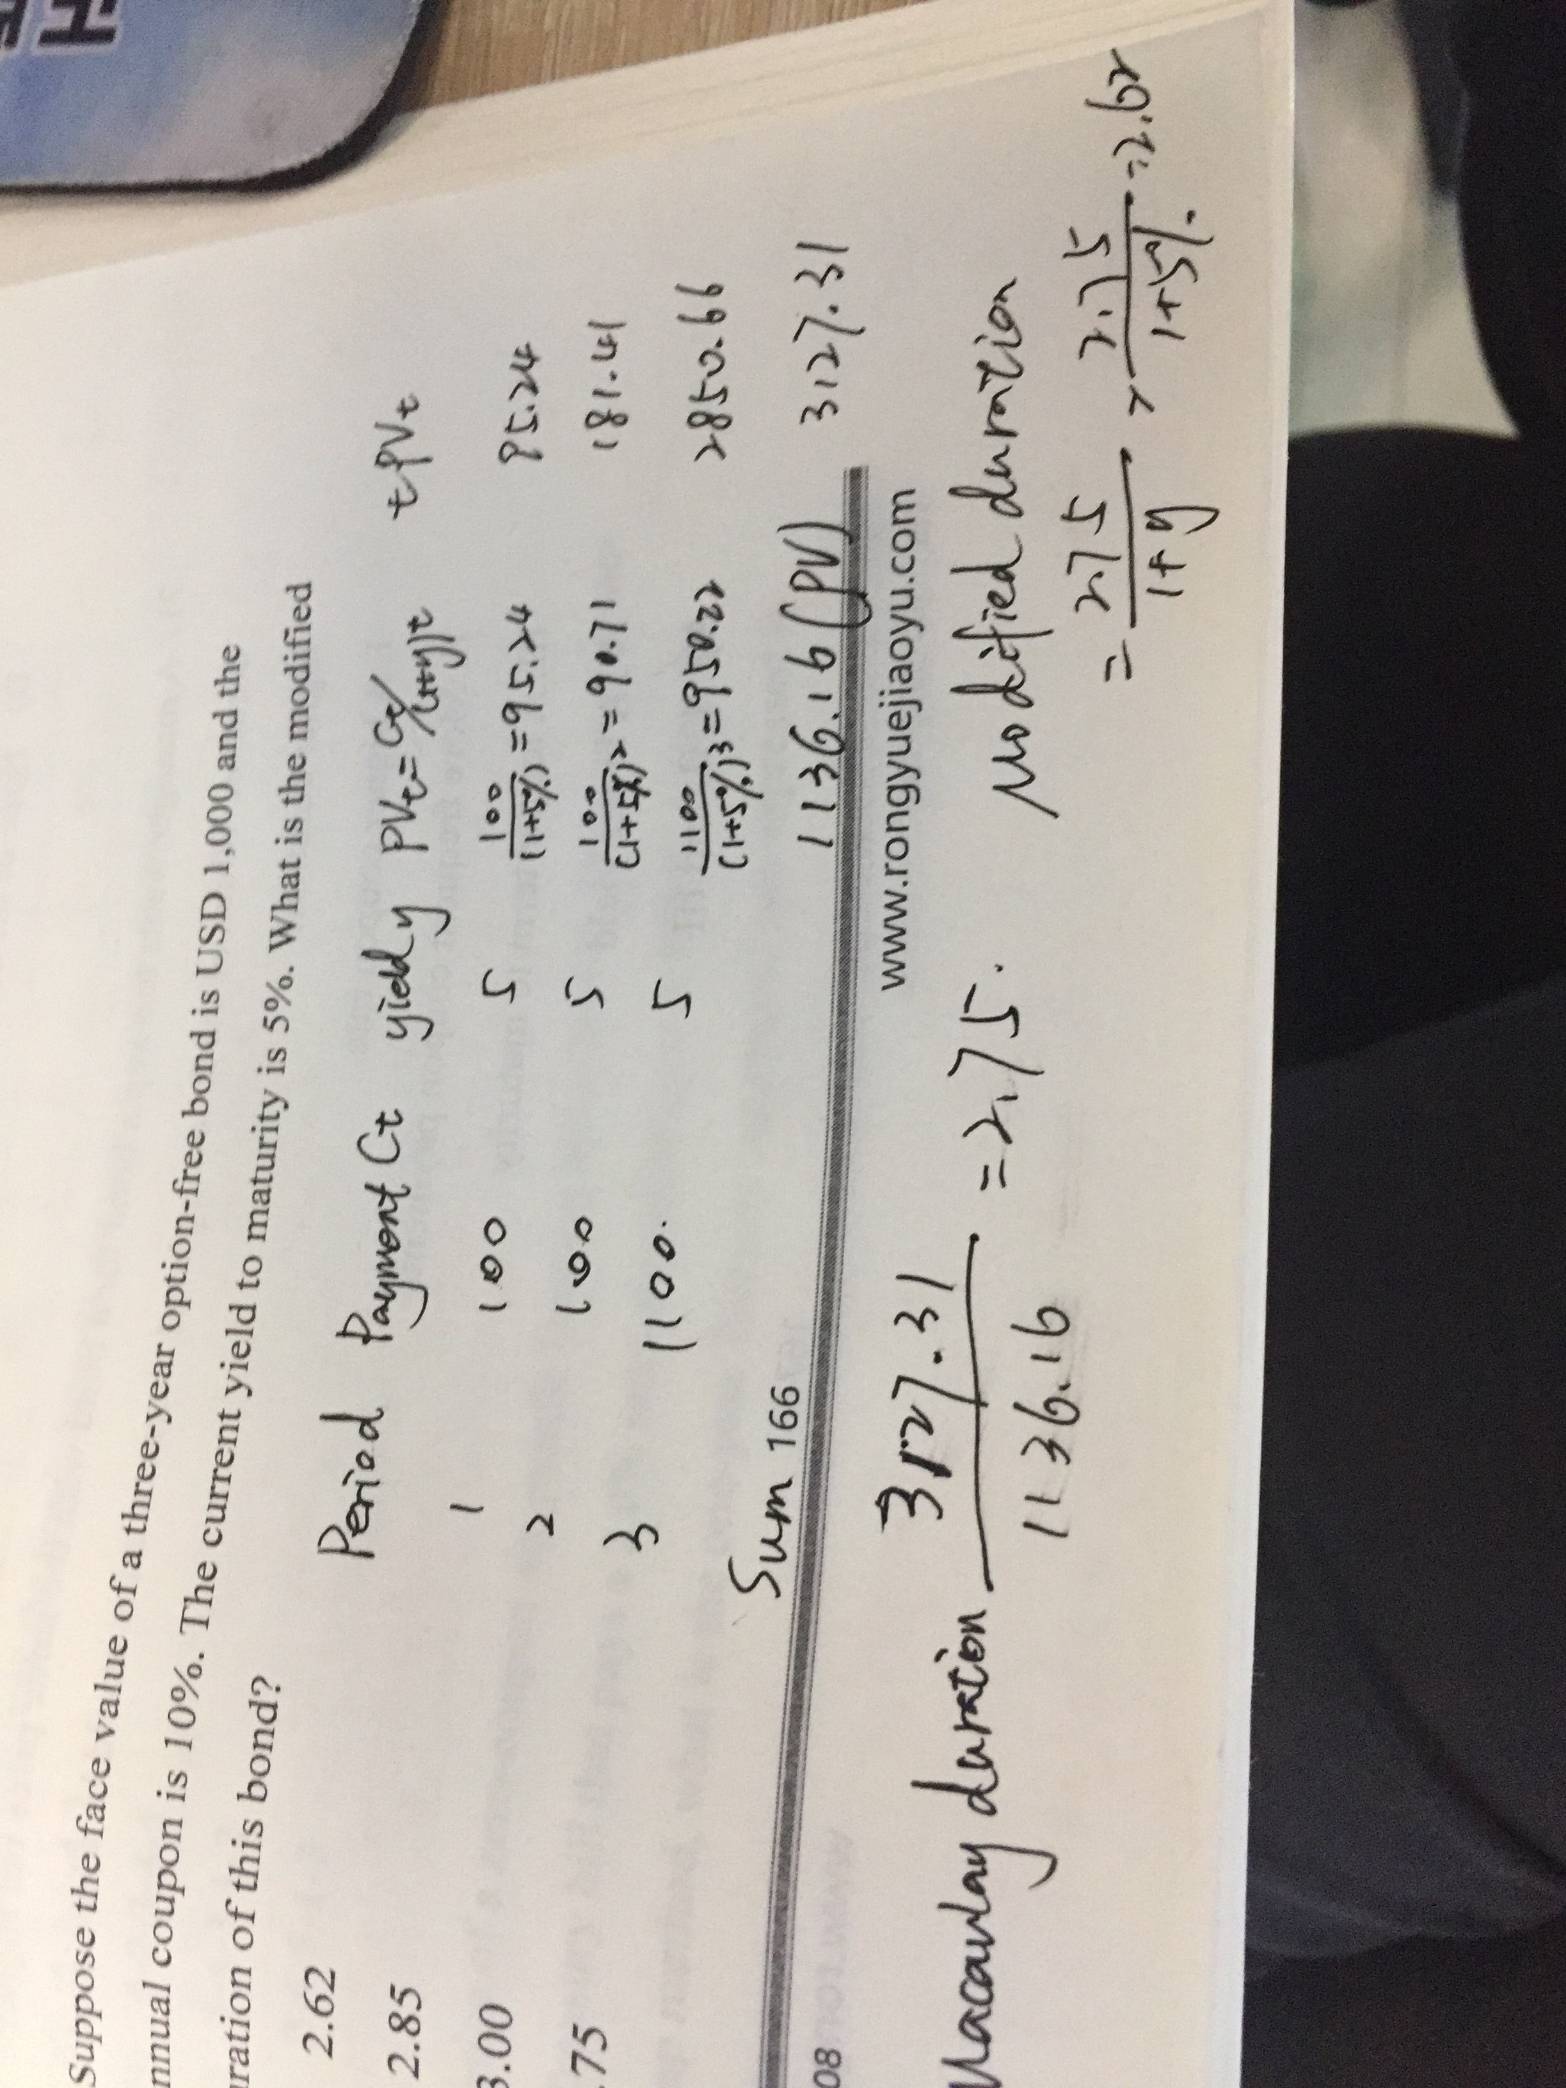 Suppose the face value of a three-year option-free bond is USD 1,000 and the
nnual coupon is 10%. The current yield to maturity is 5%. What is the modified
uration of this bond?
2.62
2.85
3.00
.75
Period Payment Ct yield y PVt=Ct/(1+y)t tPVt
1 100 5 100/(1+5%) = 95.24 95.24
2 100 5 100/(1+5%)2 = 90.71 181.41
3 1100. 5 1100/(1+5%)3 = 950.22 2850.66
Sum 1136.16 (PV) 3127.31
166
08
www.rongyuejiaoyu.com
Macaulay duration 3127.31/1136.16 = 2.75.
Modified duration
= 2.75/1+y = 2.75/1+5% = 2.62